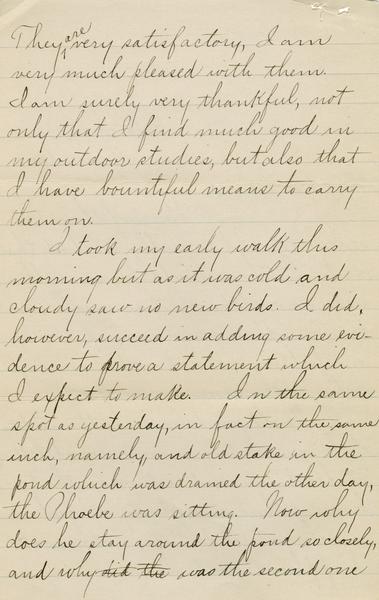 They are very satisfactory, I am
very much pleased with them.
I am surely very thankful, not
only that I find much good in
my outdoor studies, but also that
I have bountiful means to carry
them on.
I took my early walk this
morning but as it was cold and
cloudy saw no new birds. I did,
however, succeed in adding some evi-
dence to prove a statement which
I expect to make. In the same
spot as yesterday, in fact on the same
inch, namely, and old stake in the
pond which was dramed the other day,
the Phoebe was sitting. Now why
does he stay around the pond so closely,
and why did the was the second one